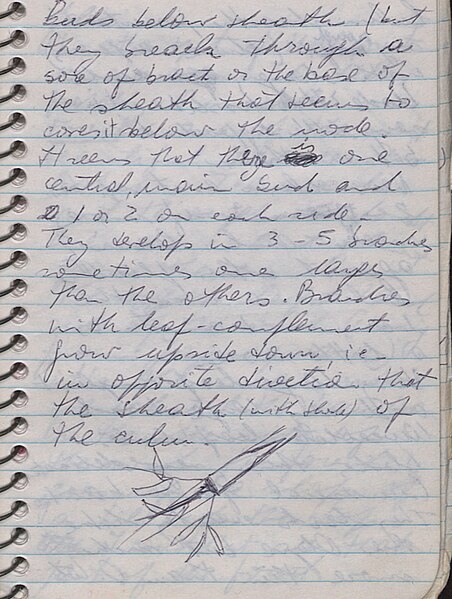 Buds below sheath (but
they break through a
sore of bract or the base of
the sheath that seems to
cover it below the node.
It seems that there is one
central, main bud and
1 or 2 on each side.
They develop in 3 - 5 branches
sometimes one larger
than the others. Branches
with leaf-complement
grow upside down ie-
in opposite direction that
the sheath (with
of
the culm.